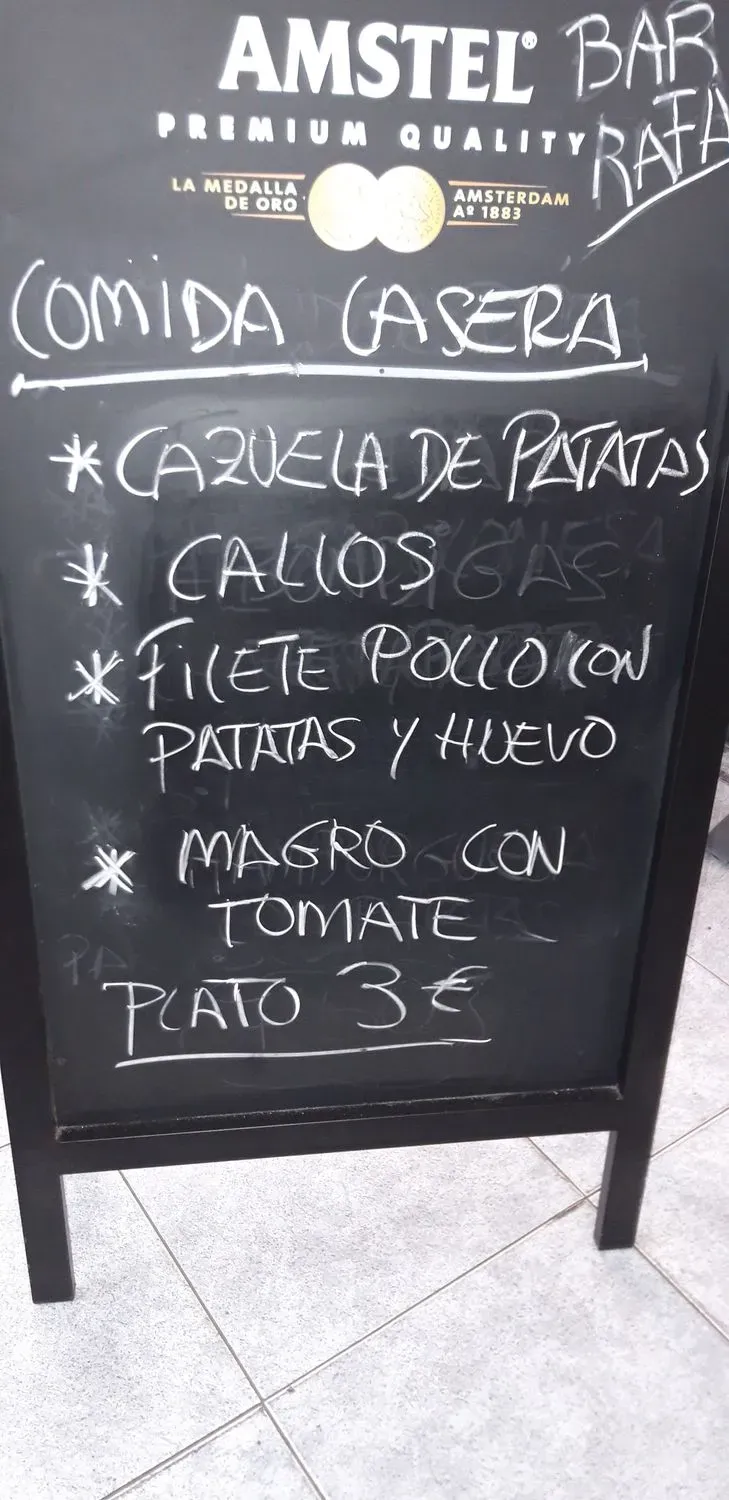 AMSTEL®
PREMIUM QUALITY
BAR
RAFA
LA MEDALLA
DE ORO
AMSTERDAM
Aº 1883
COMIDA CASERA
* CAZUELA DE PATATAS
* CALLOS
* FILETE POLLO CON
PATATAS Y HUEVO
* MAGRO CON
TOMATE
PLATO 3 €